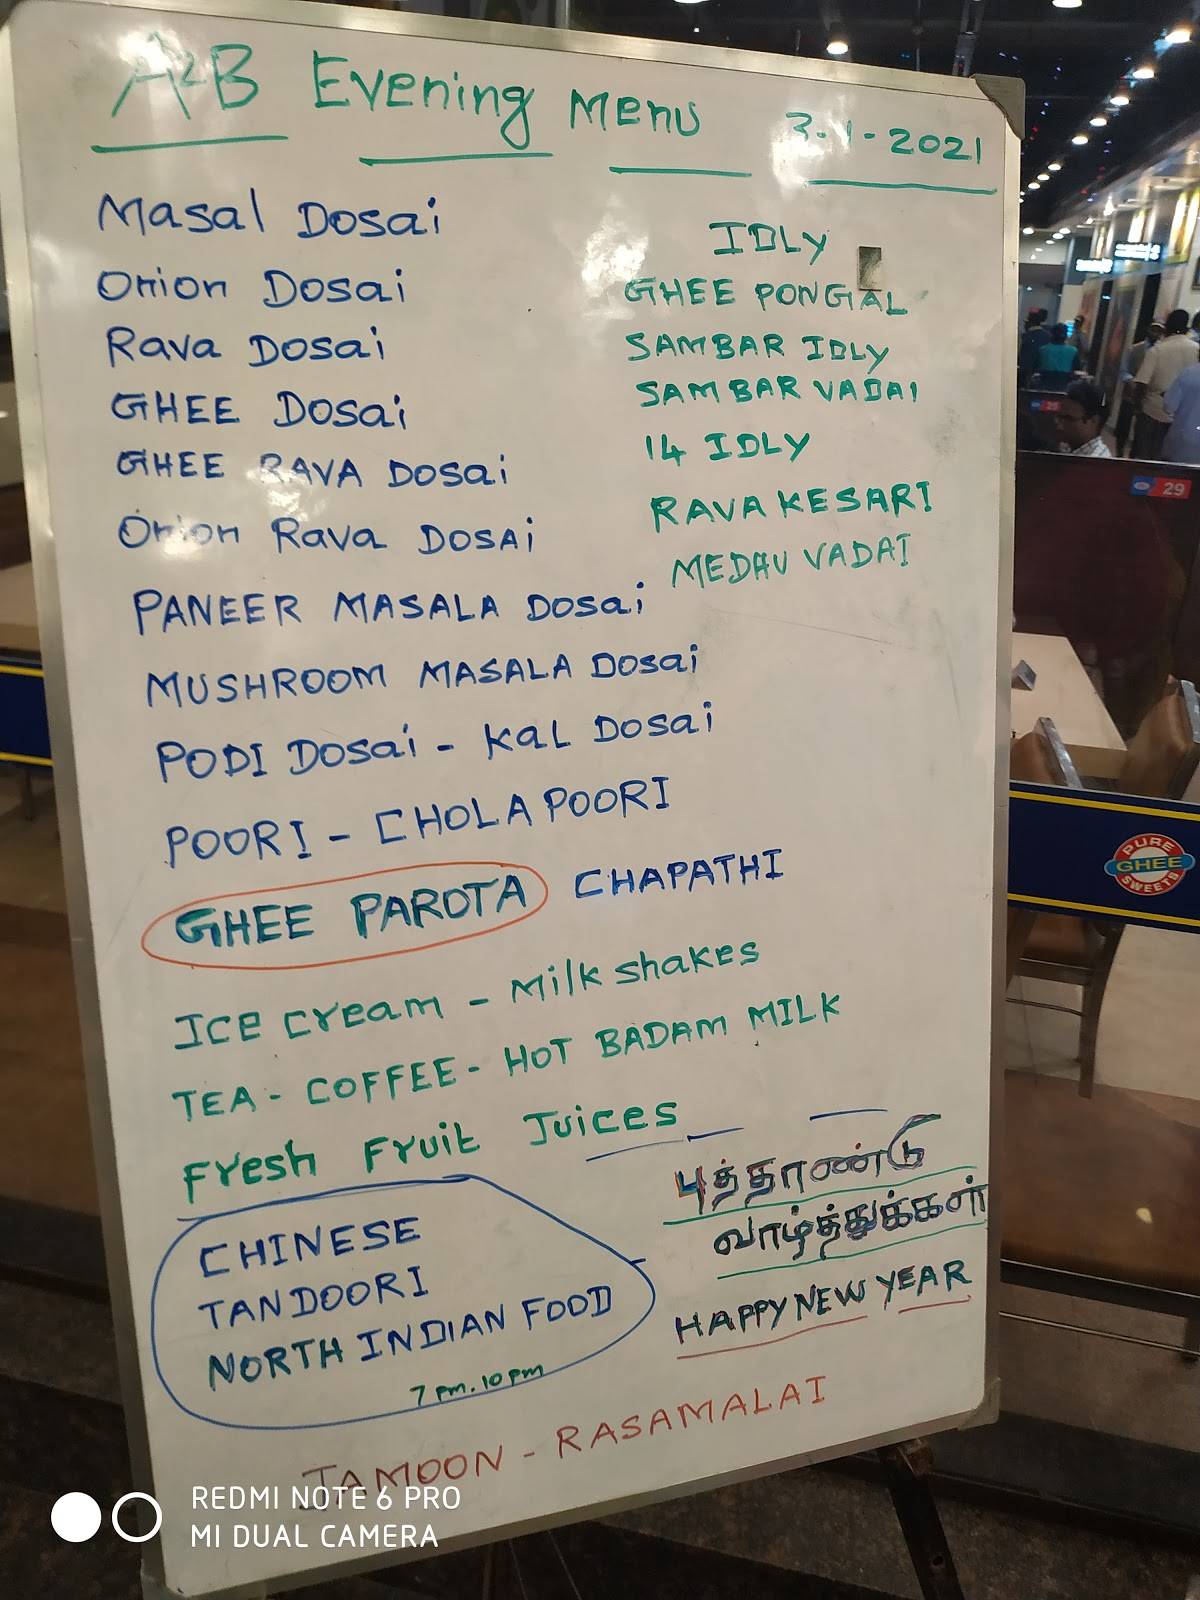 A2B Evening Menu 3-1-2021
Masal Dosai
Onion Dosai
Rava Dosai
GHEE Dosai
GHEE RAVA Dosai
Onion Rava DOSAi
PANEER MASALA Dosai
MUSHROOM MASALA Dosai
PODI Dosai - Kal Dosai
POORI - CHOLA POORI
GHEE PAROTA CHAPATHI
IDLY
GHEE PONGAL
SAMBAR IDLY
SAMBAR VADAI
14 IDLY
RAVA KESARI
MEDHU VADAI
Ice cream - Milk shakes
TEA - COFFEE - HOT BADAM MILK
Fresh Fruit Juices
CHINESE
TANDOORI
NORTH INDIAN FOOD
7 pm. 10 pm
புத்தாண்டு
வாழ்த்துக்கள்
HAPPY NEW YEAR
JAMOON - RASAMALAI
29
PURE
GHEE
SWEETS
REDMI NOTE 6 PRO
MI DUAL CAMERA